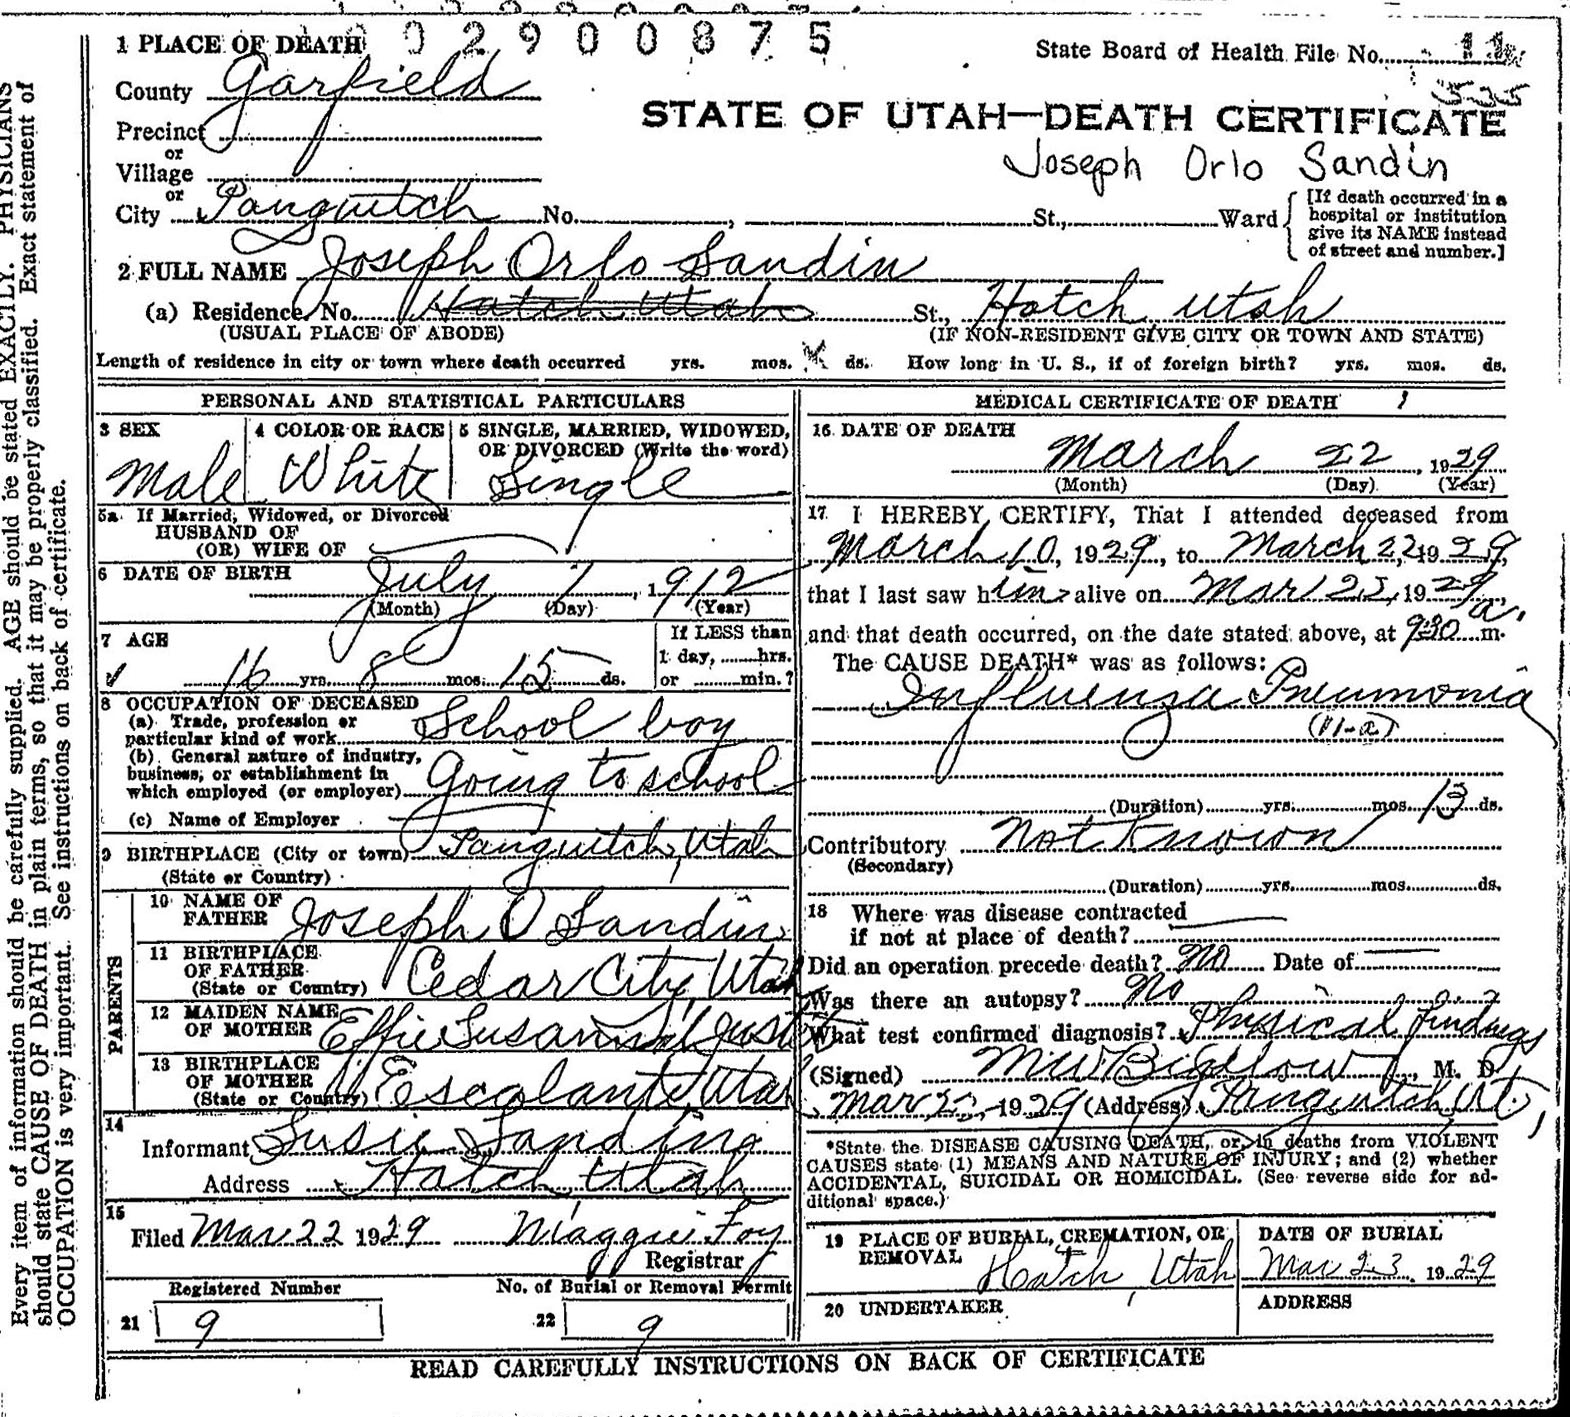 0 0 2 9 0 0 8 7 5
1 PLACE OF DEATH
State Board of Health File No. 11
535
County Garfield
STATE OF UTAH—DEATH CERTIFICATE
Precinct
or
Joseph Orlo Sandin
Village
or
City Panguitch No. , St., Ward
[If death occurred in a
hospital or institution
give its NAME instead
of street and number.]
2 FULL NAME Joseph Orlo Sandin
(a) Residence, No. Hatch Utah St., Hatch Utah
(USUAL PLACE OF ABODE) (IF NON-RESIDENT GIVE CITY OR TOWN AND STATE)
Length of residence in city or town where death occurred yrs. mos. ds. How long in U. S., if of foreign birth? yrs. mos. ds.
PERSONAL AND STATISTICAL PARTICULARS
3 SEX 4 COLOR OR RACE 5 SINGLE, MARRIED, WIDOWED,
OR DIVORCED (Write the word)
Male White Single
5a If Married, Widowed, or Divorced
HUSBAND OF
(OR) WIFE OF
6 DATE OF BIRTH July 7, 1912
(Month) (Day) (Year)
7 AGE If LESS than
1 day, hrs.
16 yrs. 8 mos. 15 ds. or min.?
8 OCCUPATION OF DECEASED
(a) Trade, profession or
particular kind of work School boy
(b) General nature of industry,
business, or establishment in
which employed (or employer) going to school
(c) Name of Employer
9 BIRTHPLACE (City or town) Panguitch, Utah
(State or Country)
PARENTS
10 NAME OF
FATHER Joseph O Sandin
11 BIRTHPLACE
OF FATHER
(State or Country) Cedar City, Utah
12 MAIDEN NAME
OF MOTHER Effie Susannah
13 BIRTHPLACE
OF MOTHER
(State or Country) Escalante Utah
14
Informant Susie Sandin
Address Hatch Utah
15
Filed Mar 22 1929 Maggie Foy
Registrar
Registered Number No. of Burial or Removal Permit
21 9 22 9
MEDICAL CERTIFICATE OF DEATH
16 DATE OF DEATH
March 22, 1929
(Month) (Day) (Year)
17 I HEREBY CERTIFY, That I attended deceased from
March 10, 1929, to March 22, 1929,
that I last saw him alive on Mar 1929,
and that death occurred, on the date stated above, at 9:30 a. m.
The CAUSE DEATH* was as follows:
Influenza Pneumonia
(11-a)
(Duration) yrs. mos. 13 ds.
Contributory Not Known
(Secondary)
(Duration) yrs. mos. ds.
18 Where was disease contracted
if not at place of death?
Did an operation precede death? No Date of
Was there an autopsy? No
What test confirmed diagnosis? Physical findings
(Signed) Bigelow, M. D.
Mar 22, 1929 (Address) Panguitch, Ut.
*State the DISEASE CAUSING DEATH, or in deaths from VIOLENT
CAUSES state (1) MEANS AND NATURE OF INJURY; and (2) whether
ACCIDENTAL, SUICIDAL OR HOMICIDAL. (See reverse side for ad-
ditional space.)
19 PLACE OF BURIAL, CREMATION, OR
REMOVAL Hatch, Utah
DATE OF BURIAL
Mar 23. 1929
20 UNDERTAKER ADDRESS
READ CAREFULLY INSTRUCTIONS ON BACK OF CERTIFICATE
Every item of information should be carefully supplied. AGE should be stated EXACTLY. PHYSICIANS
should state CAUSE OF DEATH in plain terms, so that it may be properly classified. Exact statement of
OCCUPATION is very important. See instructions on back of certificate.